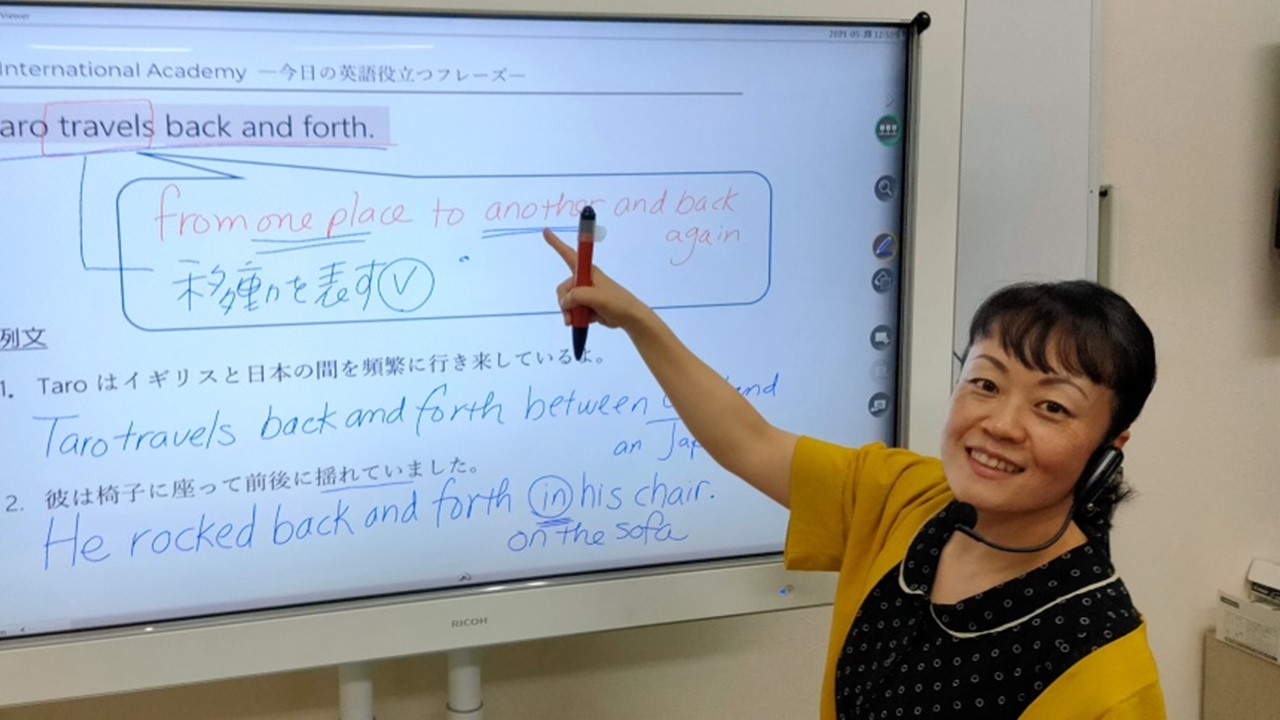 Viewer
International Academy ―今日の英語役立つフレーズ―
aro travels back and forth.
from one place to another and back
again
移動を表す Ⓥ
列文
1. Taro はイギリスと日本の間を頻繁に行き来しているよ。
Taro travels back and forth between and
an Jap
2. 彼は椅子に座って前後に揺れていました。
He rocked back and forth in his chair.
on the sofa
RICOH